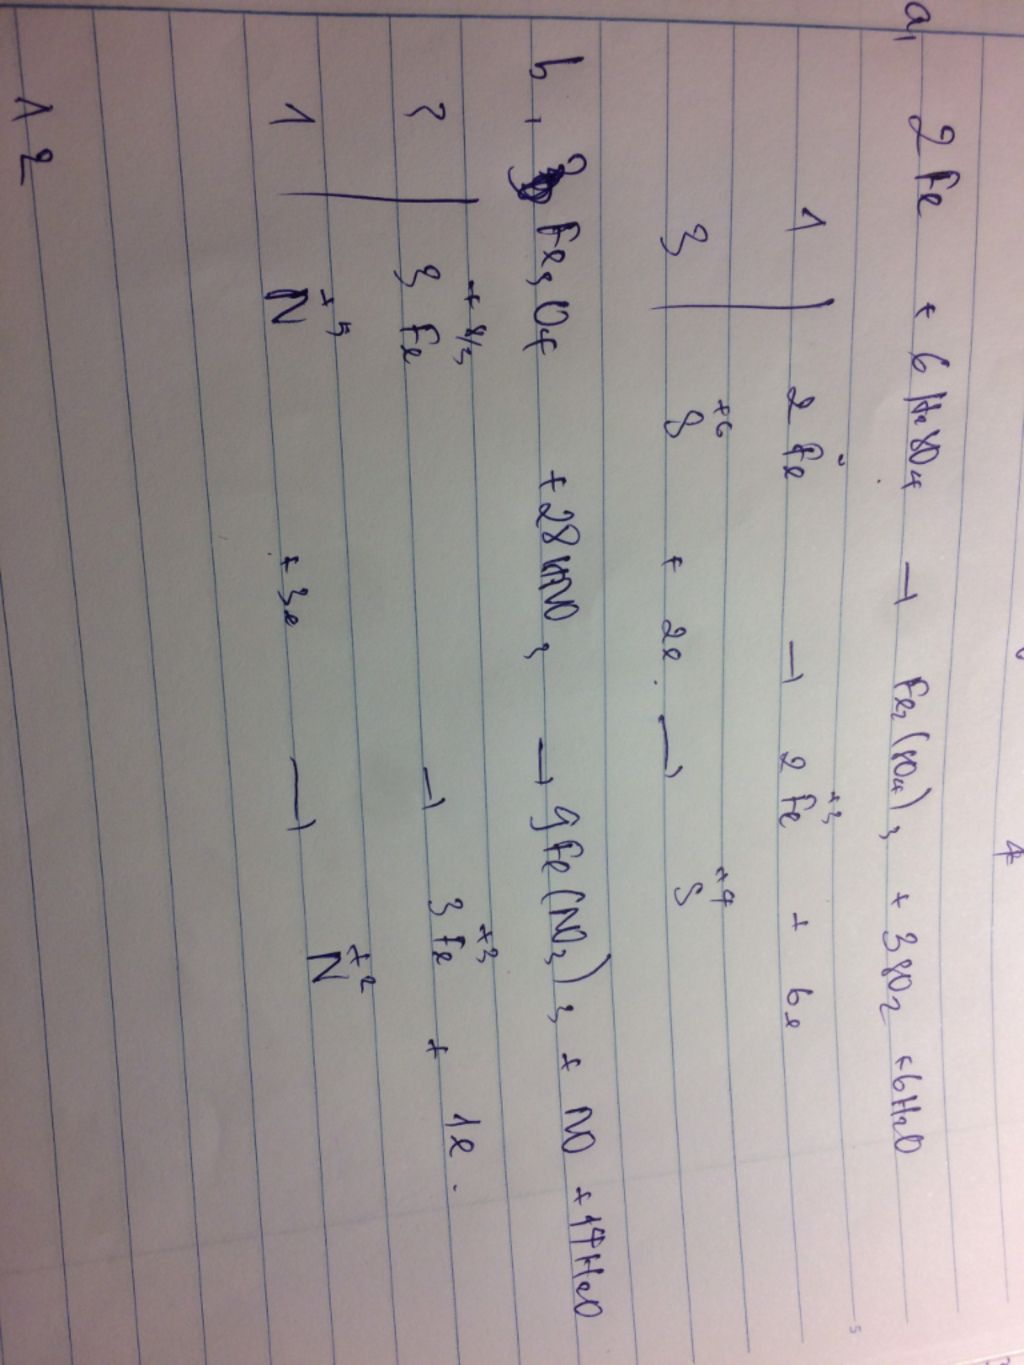 a, 2 Fe + 6 H2SO4 → Fe2(SO4)3 + 3SO2 + 6H2O
1 | 2 Fe⁰ → 2 Fe⁺³ + 6e
3 | S⁺⁶ + 2e → S⁺⁴
b, 3 Fe3O4 + 28HNO3 → 9Fe(NO3)3 + NO + 14H2O
3 | 3 Fe⁺⁸/³ → 3 Fe⁺³ + 1e.
1 | N⁺⁵ + 3e → N⁺²
12